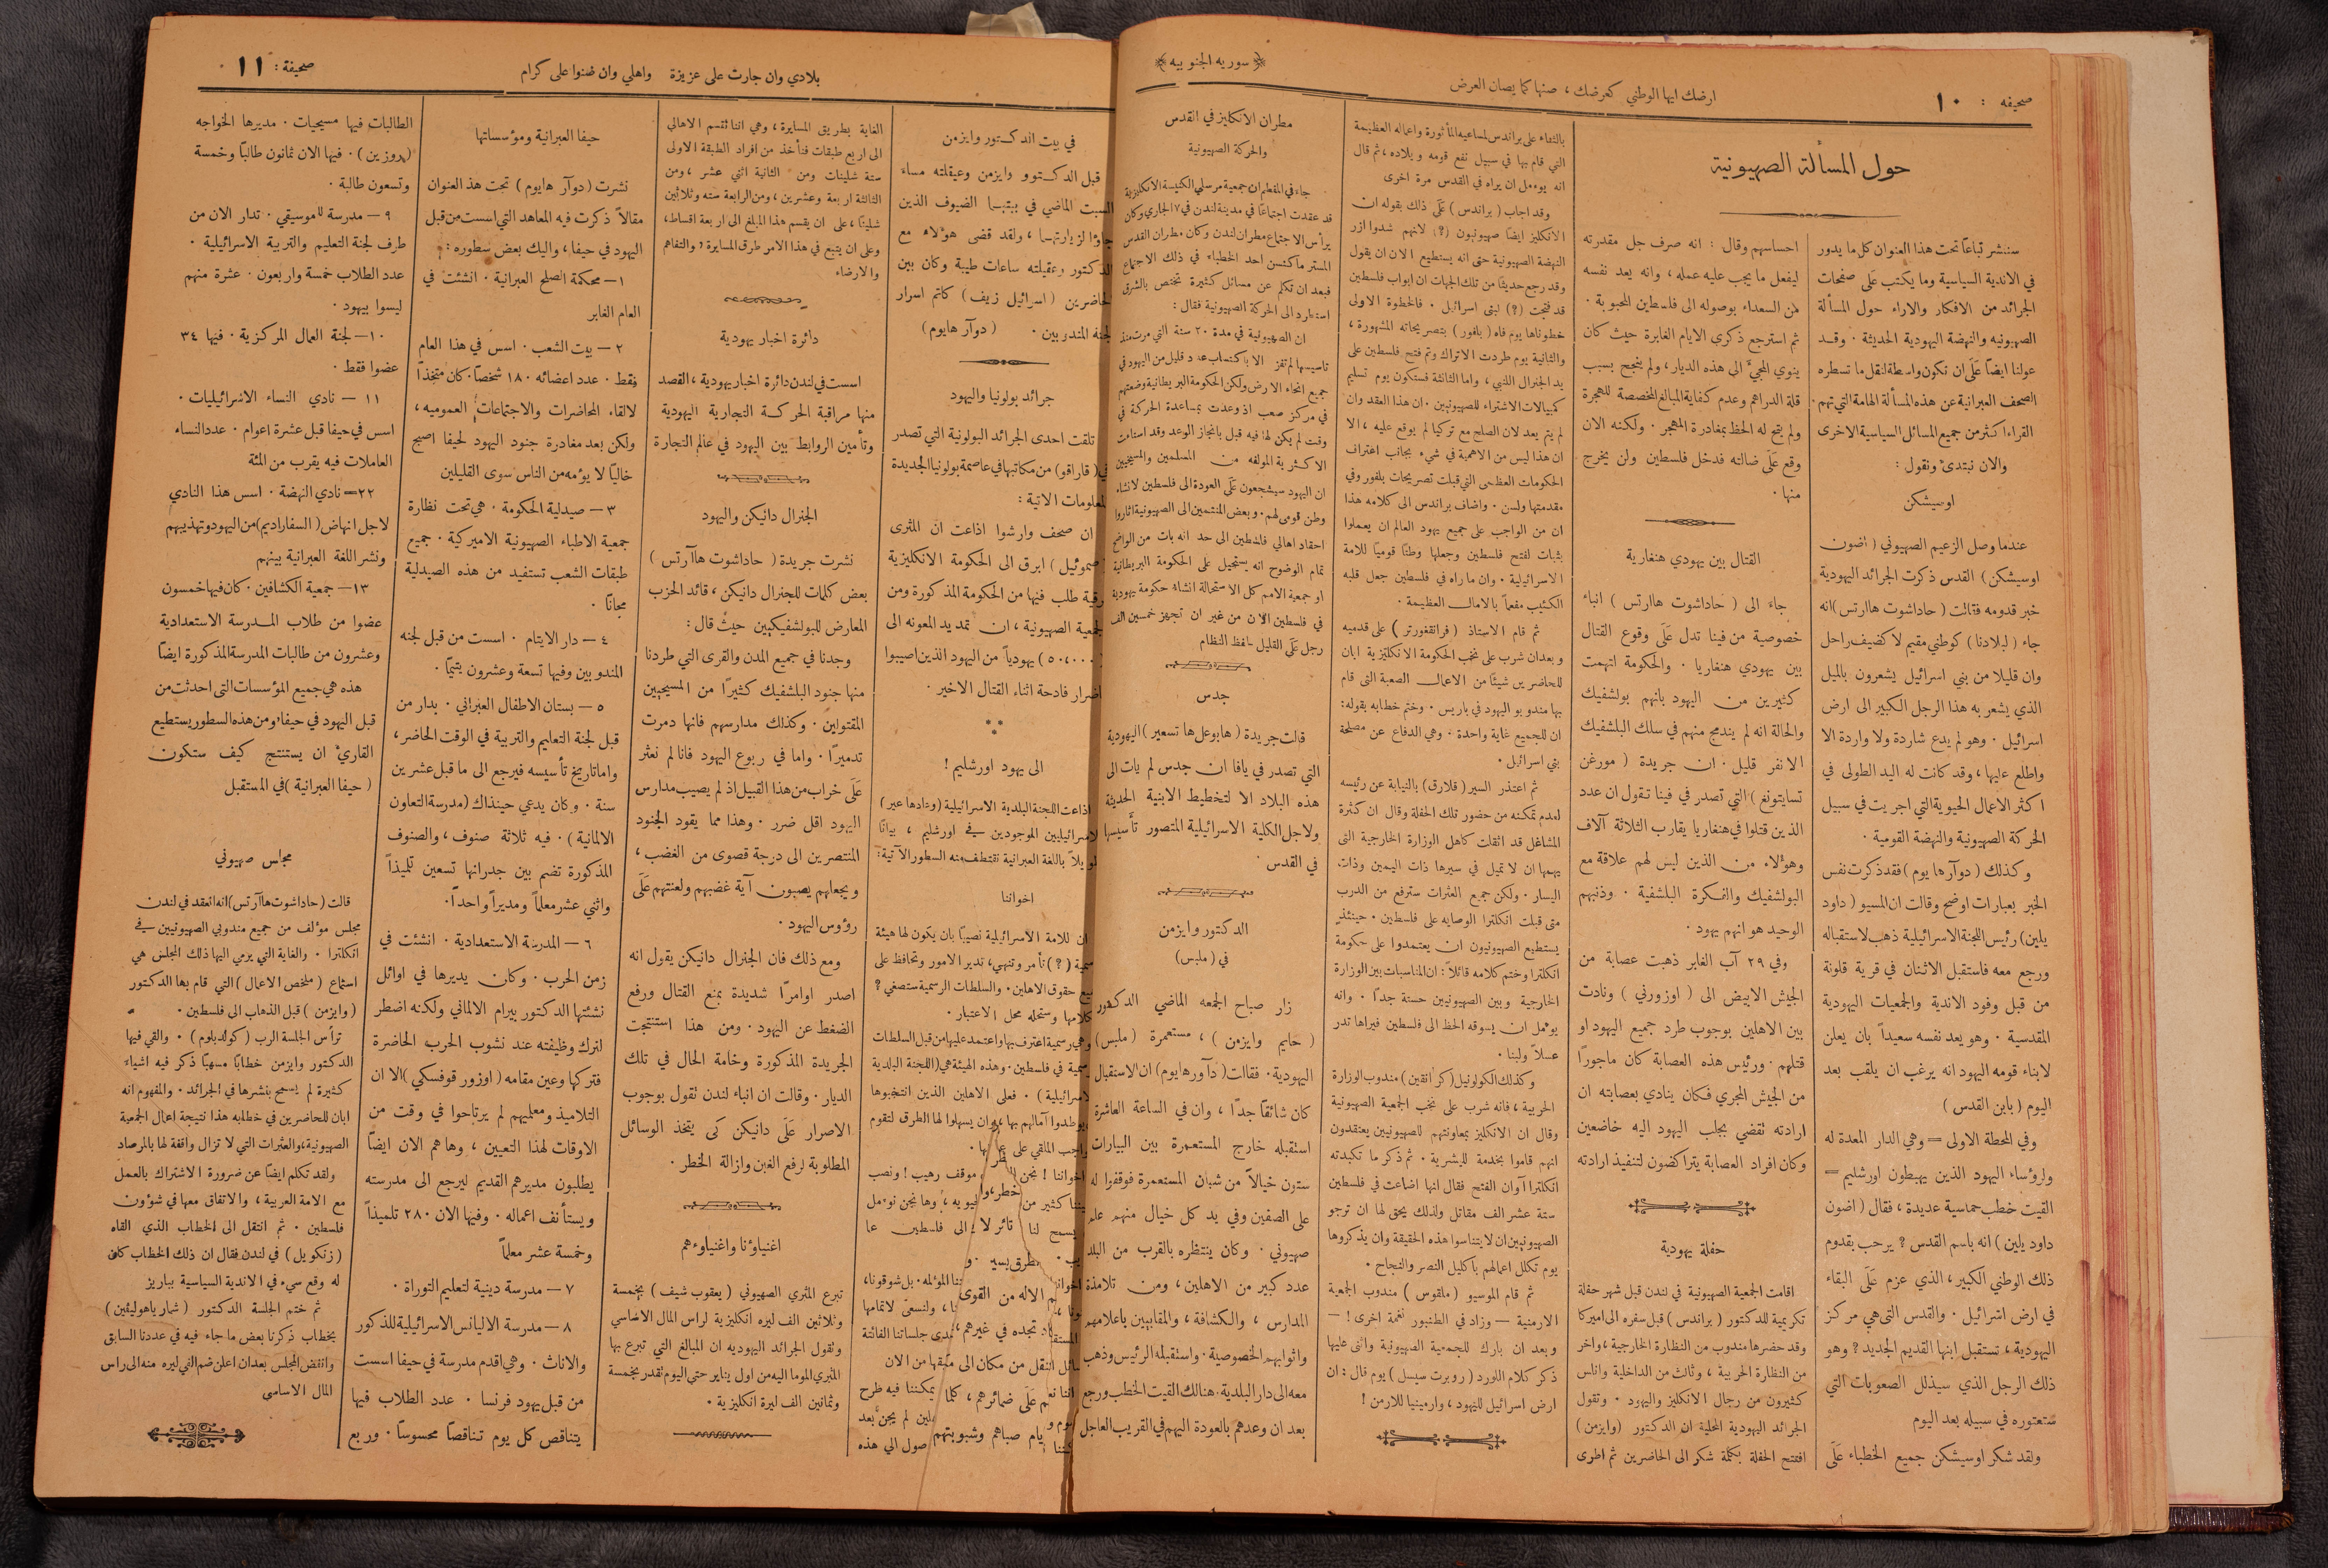 صحيفه : ١٠
ارضك ايها الوطني كعرضك ، صنها كما يصان العرض
﴿ سوريه الجنوبيه ﴾
حول المسألة الصهيونية
سننشر تباعاً تحت هذا العنوان كل ما يدور
في الاندية السياسية وما يكتب عَلَى صفحات
الجرائد من الافكار والاراء حول المسألة
الصهيونيه والنهضة اليهودية الحديثة . وقد
عولنا ايضاً عَلَى ان نكون واسطة لنقل ما تسطره
الصحف العبرانية عن هذه المسألة الهامة التي تهم
القراء اكثر من جميع المسائل السياسية الاخرى
والان نبتدئ ونقول :
اوسيشكن
عندما وصل الزعيم الصهيوني ( اضون
اوسيشكن ) القدس ذكرت الجرائد اليهودية
خبر قدومه فقالت ( حاداشوت هاارتس ) انه
جاء ( لبلادنا ) كوطني مقيم لا كضيف راحل
وان قليلا من بني اسرائيل يشعرون بالميل
الذي يشعر به هذا الرجل الكبير الى ارض
اسرائيل . وهو لم يدع شاردة ولا واردة الا
واطلع عليها ، وقد كانت له اليد الطولى في
اكثر الاعمال الحيوية التي اجريت في سبيل
الحركة الصهيونية والنهضة القومية .
وكذلك ( دوآر هايوم ) فقد ذكرت نفس
الخبر بعبارات اوضح وقالت ان المسيو ( داود
يلين ) رئيس اللجنة الاسرائيلية ذهب لاستقباله
ورجع معه فاستقبل الاثنان في قرية قلونة
من قبل وفود الاندية والجمعيات اليهودية
المقدسية . وهو يعد نفسه سعيداً بان يعلن
لابناء قومه اليهود انه يرغب ان يلقب بعد
اليوم ( بابن القدس )
وفي المحطة الاولى — وهي الدار المعدة له
ولرؤساء اليهود الذين يهبطون اورشليم —
القيت خطب حماسية عديدة ، فقال ( اضون
داود يلين ) انه باسم القدس ? يرحب بقدوم
ذلك الوطني الكبير ، الذي عزم عَلَى البقاء
في ارض اسرائيل . والقدس التي هي مركز
اليهودية ، تستقبل ابنها القديم الجديد ? وهو
ذلك الرجل الذي سيذلل الصعوبات التي
ستعتوره في سبيله بعد اليوم
ولقد شكر اوسيشكن جميع الخطباء عَلَى
احساسهم وقال : انه صرف جل مقدرته
ليفعل ما يجب عليه عمله ، وانه يعد نفسه
من السعداء بوصوله الى فلسطين المحبوبة .
ثم استرجع ذكرى الايام الغابرة حيث كان
ينوي المجيئ الى هذه الديار ، ولم ينجح بسبب
قلة الدراهم وعدم كفاية المبالغ المخصصة للهجرة
ولم يتح له الحظ بمغادرة المهجر . ولكنه الان
وقع عَلَى ضالته فدخل فلسطين ولن يخرج
منها .
القتال بين يهودي هنغارية
جاء الى ( حاداشوت هاارتس ) انباء
خصوصية من فينا تدل عَلَى وقوع القتال
بين يهودي هنغاريا . والحكومة اتهمت
كثيرين من اليهود بانهم بولشفيك
والحالة انه لم يندمج منهم في سلك البلشفيك
الا نفر قليل . ان جريدة ( مورغن
تسايتونغ ) التي تصدر في فينا تقول ان عدد
الذين قتلوا في هنغاريا يقارب الثلاثة آلاف
وهؤلاء من الذين ليس لهم علاقة مع
البولشفيك والفكرة البلشفية . وذنبهم
الوحيد هو انهم يهود .
وفي ٢٩ آب الغابر ذهبت عصابة من
الجيش الابيض الى ( اوزورني ) ونادت
بين الاهلين بوجوب طرد جميع اليهود او
قتلهم . ورئيس هذه العصابة كان ماجوراً
من الجيش المجري فكان ينادي بعصابته ان
ارادته تقضي بجلب اليهود اليه خاضعين
وكان افراد العصابة يتراكضون لتنفيذ ارادته
حفلة يهودية
اقامت الجمعية الصهيونية في لندن قبل شهر حفلة
تكريمية للدكتور ( براندس ) قبل سفره الى اميركا
وقد حضرها مندوب من النظارة الخارجية ، واخر
من النظارة الحربية ، وثالث من الداخلية واناس
كثيرون من رجال الانكليز واليهود . وتقول
الجرائد اليهودية المحلية ان الدكتور ( وايزمن )
افتتح الحفلة بكلمة شكر الى الحاضرين ثم اطرى
بالثناء على براندس لمساعيه المأثورة واعماله العظيمة
التي قام بها في سبيل نفع قومه وبلاده ، ثم قال
انه يوءمل ان يراه في القدس مرة اخرى
وقد اجاب ( براندس ) عَلَى ذلك بقوله ان
الانكليز ايضاً صهيونيون (?) لانهم شدوا ازر
النهضة الصهيونية حتى انه يستطيع الان ان يقول
وقد رجع حديثاً من تلك الجهات ان ابواب فلسطين
قد فتحت (?) لبنى اسرائيل . فالخطوة الاولى
خطوناها يوم فاه ( بلفور ) بتصريحاته المشهورة ،
والثانية يوم طردت الاتراك وتم فتح فلسطين على
يد الجنرال اللنبي ، واما الثالثة فستكون يوم تسليم
كمبيالات الاشتراء للصهيونيين . ان هذا العقد وان
لم يتم بعد لان الصلح مع تركيا لم يوقع عليه ، الا
ان هذا ليس من الاهمية في شيء بجانب اعتراف
الحكومات العظمى التي قبلت تصريحات بلفور وفي
مقدمتها ولسن . واضاف براندس الى كلامه هذا
ان من الواجب على جميع يهود العالم ان يعملوا
بثبات لفتح فلسطين وجعلها وطناً قومياً للامة
الاسرائيلية . وان ما راه في فلسطين جعل قلبه
الكئيب مفعماً بالامال العظيمة .
ثم قام الاستاذ ( فرانقفورتر ) على قدميه
وبعد ان شرب على نخب الحكومة الانكليزية ابان
للحاضرين شيئاً من الاعمال الصعبة التي قام
بها مندوبو اليهود في باريس . وختم خطابه بقوله :
ان للجميع غاية واحدة . وهي الدفاع عن مصلحة
بني اسرائيل .
ثم اعتذر السير ( قلارق ) بالنيابة عن رئيسه
لعدم تمكنه من حضور تلك الحفلة وقال ان كثرة
المشاغل قد اثقلت كاهل الوزارة الخارجية التي
يهمها ان لا تميل في سيرها ذات اليمين وذات
اليسار . ولكن جميع العثرات سترفع من الدرب
متى قبلت انكلترا الوصايه على فلسطين . حينئذ
يستطيع الصهيونيون ان يعتمدوا على حكومة
انكلترا وختم كلامه قائلاً : ان المناسبات بين الوزارة
الخارجية وبين الصهيونيين حسنة جداً . وانه
يوءمل ان يسوقه الحظ الى فلسطين فيراها تدر
عسلاً ولبنا .
وكذلك الكولونيل ( كرانقين ) مندوب الوزارة
الحربية ، فانه شرب على نخب الجمعية الصهيونية
وقال ان الانكليز بمعاونتهم للصهيونيين يعتقدون
انهم قاموا بخدمة للبشرية . ثم ذكر ما تكبدته
انكلترا آوان الفتح فقال انها اضاعت في فلسطين
ستة عشر الف مقاتل ولذلك يحق لها ان ترجو
الصهيونيين ان لا يتناسوا هذه الحقيقة وان يذكروها
يوم تكلل اعمالهم باكليل النصر والنجاح .
ثم قام الموسيو ( ملقوس ) مندوب الجمعية
الارمنية — وزاد في الطنبور نغمة اخرى ! —
وبعد ان بارك للجمعية الصهيونية واثنى عليها
ذكر كلام اللورد ( روبرت سيسل ) يوم قال : ان
ارض اسرائيل لليهود ، وارمينيا للارمن !
مطران الانكليز في القدس
والحركة الصهيونية
جاء في المقطم ان جمعية مرسلي الكنيسة الانكليزية
قد عقدت اجتماعاً في مدينة لندن في ٧ الجاري وكان
يرأس الاجتماع مطران لندن وكان مطران القدس
المستر ماكنسن احد الخطباء في ذلك الاجتماع
فبعد ان تكلم عن مسائل كثيرة تختص بالشرق
استطرد الى الحركة الصهيونية فقال :
ان الصهيونية في مدة ٢٠ سنة التي مرت منذ
تاسيسها لم تفز الا باكتساب عدد قليل من اليهود في
جميع انحاء الارض ولكن الحكومة البريطانية وضعتهم
في مركز صعب اذ وعدت بمساعدة الحركة في
وقت لم يكن لها فيه قبل بانجاز الوعد وقد استاءت
الاكثرية المؤلفه من المسلمين والمسيحيين
ان اليهود سيشجعون عَلَى العودة الى فلسطين لانشاء
وطن قومى لهم . وبعض المنتمين الى الصهيونية اثاروا
احقاد اهالي فلسطين الى حد انه بات من الواضح
تمام الوضوح انه يستحيل على الحكومة البريطانية
او جمعية الامم كل الاستحالة انشاء حكومة يهودية
في فلسطين الان من غير ان تجهز خمسين الف
رجل عَلَى القليل لحفظ النظام
جدس
قالت جريدة ( هابوعل ها تسعير ) اليهودية
التي تصدر في يافا ان جدس لم يات الى
هذه البلاد الا لتخطيط الابنية الحديثة
ولاجل الكلية الاسرائيلية المتصور تأسيسها
في القدس .
الدكتور وايزمن
في ( ملبس )
زار صباح الجمعه الماضي الدكتور
( حايم وايزمن ) ، مستعمرة ( ملبس )
اليهودية . فقالت ( دآور هايوم ) ان الاستقبال
كان شائقاً جداً ، وان في الساعة العاشرة
استقبله خارج المستعمرة بين البيارات
ستون خيالاً من شبان المستعمرة فوقفوا له
على الصفين وفي يد كل خيال منهم علم
صهيوني . وكان ينتظره بالقرب من البلد
عدد كبير من الاهلين ، ومن تلامذة
المدارس ، والكشافة ، والمقابيين باعلامهم
واثوابهم الخصوصية . واستقبله الرئيس وذهب
معه الى دار البلدية . هنالك القيت الخطب ورجع
بعد ان وعدهم بالعودة اليهم في القريب العاجل
بلادي وان جارت على عزيزة واهلي وان ضنوا على كرام
صحيفة : ١١
في بيت الدكتور وايزمن
قبل الدكتور وايزمن وعيقلته مساء
السبت الماضي في بيتهما الضيوف الذين
جاؤا لزيارتهما ، ولقد قضى هؤلاء مع
الدكتور وعقيلته ساعات طيبة وكان بين
الحاضرين ( اسرائيل زيف ) كاتم اسرار
لجنة المندوبين . ( دوآر هايوم )
جرائد بولونيا واليهود
تلقت احدى الجرائد البولونية التي تصدر
في ( قاراقو ) من مكاتبها في عاصمة بولونيا الجديدة
المعلومات الاتية :
ان صحف وارشوا اذاعت ان المثرى
( صموئيل ) ابرق الى الحكومة الانكليزية
برقية طلب فيها من الحكومة المذكورة ومن
الجمعية الصهيونية ، ان تمد يد المعونه الى
( ٥٠،٠٠٠ ) يهودياً من اليهود الذين اصيبوا
باضرار فادحة اثناء القتال الاخير .
الى يهود اورشليم !
اذاعت اللجنة البلدية الاسرائيلية ( وعادها عير )
لاسرائيليين الموجودين في اورشليم ، بياناً
طويلاً باللغة العبرانية نقتطف منه السطور الآتية :
اخواننا
ان للامة الاسرائيلية نصيباً بان يكون لها هيئة
رسمية (?) تأمر وتنهي ، تدير الامور وتحافظ على
جميع حقوق الاهلين . والسلطات الرسمية ستصغي ?
لكلامها وستحله محل الاعتبار .
وهي رسمية اعترف بها واعتمد عليها من قبل السلطات
الرسمية في فلسطين . وهذه الهيئة هي ( اللجنة البلدية
الاسرائيلية ) . فعلى الاهلين الذين انتخبوها
ان يوطدوا آمالهم بها ، وان يسهلوا لها الطرق لتقوم
بالواجب الملقي على
اخواننا ! نحن موقف رهيب ! ونصب
كثير من وها نحن نوءمل
يسمح لنا الى فلسطين عما
الاله من القوى ولنسعَ لاتمامها
تجده في غيرهم جلساتنا الفائتة
النقل من مكان الى من الان
عَلَى ضمائرهم ، كما يمكننا فيه طرح
ايام صباهم وشبوبيتهم لم يحن بعد
الى هذه
الغاية بطريق المسايرة ، وهي اننا نقسم الاهالي
الى اربع طبقات فنأخذ من افراد الطبقة الاولى
ستة شلينات ومن الثانية اثني عشر ، ومن
الثالثة اربعة وعشرين ، ومن الرابعة سته وثلاثين
شليناً ، على ان يقسم هذا المبلغ الى اربعة اقساط ،
وعلى ان يتبع في هذا الامر طرق المسايرة ، والتفاهم
والارضاء
دائرة اخبار يهودية
اسست في لندن دائرة اخبار يهودية ، القصد
منها مراقبة الحركة التجارية اليهودية
وتأمين الروابط بين اليهود في عالم التجارة
الجنرال دانيكن واليهود
نشرت جريدة ( حاداشوت هاآرتس )
بعض كلمات للجنرال دانيكن ، قائد الحزب
المعارض للبولشفيكيين حيث قال :
وجدنا في جميع المدن والقرى التي طردنا
منها جنود البلشفيك كثيراً من المسيحيين
المقتولين . وكذلك مدارسهم فانها دمرت
تدميراً . واما في ربوع اليهود فاننا لم نعثر
عَلَى خراب من هذا القبيل اذ لم يصيب مدارس
اليهود اقل ضرر . وهذا مما يقود الجنود
المنتصرين الى درجة قصوى من الغضب ،
ويجعلهم يصبون آية غضبهم ولعنتهم عَلَى
رؤوس اليهود .
ومع ذلك فان الجنرال دانيكن يقول انه
اصدر اوامراً شديدة بمنع القتال ورفع
الضغط عن اليهود . ومن هذا استنتجت
الجريدة المذكورة وخامة الحال في تلك
الديار . وقالت ان انباء لندن تقول بوجوب
الاصرار عَلَى دانيكن كى يتخذ الوسائل
المطلوبة لرفع الغبن وازالة الخطر .
اغنياؤنا واغنياوءهم
تبرع المثري الصهيوني ( يعقوب شيف ) بخمسة
وثلاثين الف ليره انكليزية لراس المال الاساسي
وتقول الجرائد اليهوديه ان المبالغ التي تبرع بها
المثري الموما اليه من اول يناير حتى اليوم تقدر بخمسة
وثمانين الف ليرة انكليزية .
حيفا العبرانية ومؤسساتها
نشرت ( دوآر هايوم ) تحت هذ العنوان
مقالاً ذكرت فيه المعاهد التي اسست من قبل
اليهود في حيفا ، واليك بعض سطوره :
١ — محكمة الصلح العبرانية . انشئت في
العام الغابر
٢ — بيت الشعب . اسس في هذا العام
فقط . عدد اعضائه ١٨٠ شخصاً . كان متخذاً
لالقاء المحاضرات والاجتماعات العموميه ،
ولكن بعد مغادرة جنود اليهود لحيفا اصبح
خالياً لا يؤمه من الناس سوى القليلين
٣ — صيدلية الحكومة . هي تحت نظارة
جمعية الاطباء الصهيونية الاميركية . جميع
طبقات الشعب تستفيد من هذه الصيدلية
مجاناً .
٤ — دار الايتام . اسست من قبل لجنه
المندوبين وفيها تسعة وعشرون يتيماً .
٥ — بستان الاطفال العبراني . يدار من
قبل لجنة التعليم والتربية في الوقت الحاضر ،
واما تاريخ تأسيسه فيرجع الى ما قبل عشرين
سنة . وكان يدعي حينذاك ( مدرسة التعاون
الالمانية ) . فيه ثلاثة صنوف ، والصنوف
المذكورة تضم بين جدرانها تسعين تلميذاً
واثني عشر معلماً ومديراً واحداً .
٦ — المدرسة الاستعدادية . انشئت في
زمن الحرب . وكان يديرها في اوائل
نشئتها الدكتور بيرام الالماني ولكنه اضطر
لترك وظيفته عند نشوب الحرب الحاضرة
فتركها وعين مقامه ( اوزور قوفسكي ) الا ان
التلاميذ ومعلميهم لم يرتاحوا في وقت من
الاوقات لهذا التعيين ، وها هم الان ايضاً
يطلبون مديرهم القديم ليرجع الى مدرسته
ويستأنف اعماله . وفيها الان ٢٨٠ تلميذاً
وخمسة عشر معلماً
٧ — مدرسة دينية لتعليم التوراة .
٨ — مدرسة الاليانس الاسرائيلية للذكور
والاناث . وهي اقدم مدرسة في حيفا اسست
من قبل يهود فرنسا . عدد الطلاب فيها
يتناقص كل يوم تناقصاً محسوساً . وربع
الطالبات فيها مسيحيات . مديرها الخواجه
( بروزين ) . فيها الان ثمانون طالباً وخمسة
وتسعون طالبة .
٩ — مدرسة للموسيقي . تدار الان من
طرف لجنة التعليم والتربية الاسرائيلية .
عدد الطلاب خمسة واربعون . عشرة منهم
ليسوا بيهود .
١٠ — لجنة العمال المركزية . فيها ٣٤
عضوا فقط .
١١ — نادي النساء الاسرائيليات .
اسس في حيفا قبل عشرة اعوام . عدد النساء
العاملات فيه يقرب من المئة
٢٢ — نادي النهضة . اسس هذا النادي
لاجل انهاض ( السفاراديم ) من اليهود وتهذيبهم
ونشر اللغة العبرانية بينهم
١٣ — جمعية الكشافين . كان فيها خمسون
عضوا من طلاب المدرسة الاستعدادية
وعشرون من طالبات المدرسة المذكورة ايضاً
هذه هي جميع المؤسسات التي احدثت من
قبل اليهود في حيفا ، ومن هذه السطور يستطيع
القارئ ان يستنتج كيف ستكون
( حيفا العبرانية ) في المستقبل
مجلس صهيوني
قالت ( حاداشوت هاآرتس ) انه انعقد في لندن
مجلس مؤلف من جميع مندوبي الصهيونيين في
انكلترا . والغاية التي يرمي اليها ذلك المجلس هي
استماع ( ملخص الاعمال ) التي قام بها الدكتور
( وايزمن ) قبل الذهاب الى فلسطين .
ترأس الجلسة الرب ( كولدبلوم ) . والقي فيها
الدكتور وايزمن خطاباً مسهباً ذكر فيه اشياء
كثيرة لم يسمح بنشرها في الجرائد . والمفهوم انه
ابان للحاضرين في خطابه هذا نتيجة اعمال الجمعية
الصهيونية ، والعثرات التي لا تزال واقفة لها بالمرصاد
ولقد تكلم ايضاً عن ضرورة الاشتراك بالعمل
مع الامة العربية ، والاتفاق معها في شؤون
فلسطين . ثم انتقل الى الخطاب الذي القاه
( زنكويل ) في لندن فقال ان ذلك الخطاب كان
له وقع سيء في الاندية السياسية بباريز
ثم ختم الجلسة الدكتور ( شمارياهو ليفين )
بخطاب ذكرنا بعض ما جاء فيه في عددنا السابق
وانفض المجلس بعد ان اعلن ضم الفي ليره منه الى راس
المال الاساسي